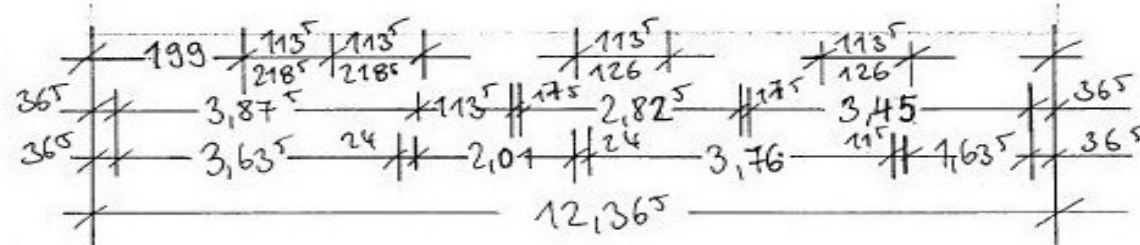 199 113⁵ 113⁵ 113⁵ 113⁵
218⁵ 218⁵ 126 126
36⁵ 3,87⁵ 113⁵ 17⁵ 2,82⁵ 17⁵ 3,45 36⁵
36⁵ 3,63⁵ 24 2,01 24 3,76 11⁵ 1,63⁵ 36⁵
12,36⁵